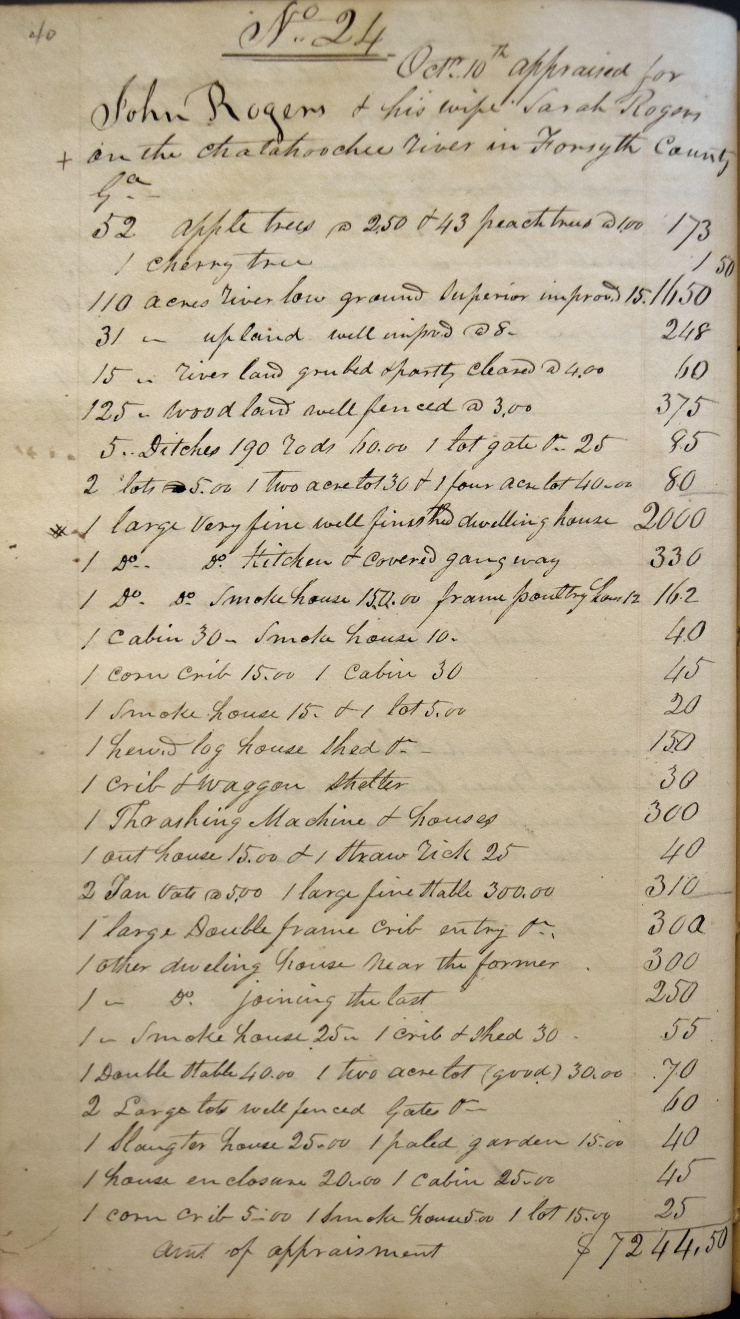 40
No. 24
Octr. 10th appraised for
John Rogers & his wife Sarah Rogers
+ on the chatahoochee river in Forsyth County
Ga
52 apple trees @ 2.50 & 43 peach trees @ 1.00 173
1 cherry tree 1 50
110 acres river low ground superior improvd 15. 1650
31 " upland well improvd @ 8- 248
15 " river land grubed & partly cleared @ 4.00 60
125 " wood land well fenced @ 3.00 375
5 " Ditches 190 rods 60.00 1 lot gate &c 25 85
2 lots 5.00 1 two acre lot 30 & 1 four acre lot 40.00 80
* 1 large very fine well finished dwelling house 2000
1 Do. Do. Kitchen & covered gangway 330
1 Do. Do. Smoke house 150.00 frame poultry house 12 162
1 cabin 30- Smoke house 10- 40
1 corn crib 15.00 1 Cabin 30 45
1 Smoke house 15. & 1 lot 5.00 20
1 hewd log house shed &c - 150
1 crib & waggon shelter 30
1 Thrashing Machine & houses 300
1 out house 15.00 & 1 straw rick 25 40
2 Tan vats @ 5.00 1 large fine stable 300.00 310
1 large Double frame crib entry &c. 300
1 other dweling house near the former . 300
1 " Do. joining the last 250
1 " Smoke house 25 " 1 crib & shed 30 - 55
1 Double stable 40.00 1 two acre lot (good) 30.00 70
2 Large lots well fenced Gates &c 60
1 Slaugter house 25.00 1 paled garden 15.00 40
1 house enclosure 20.00 1 cabin 25.00 45
1 corn crib 5.00 1 Smoke house 5.00 1 lot 15.00 25
amt of appraisment $7244.50